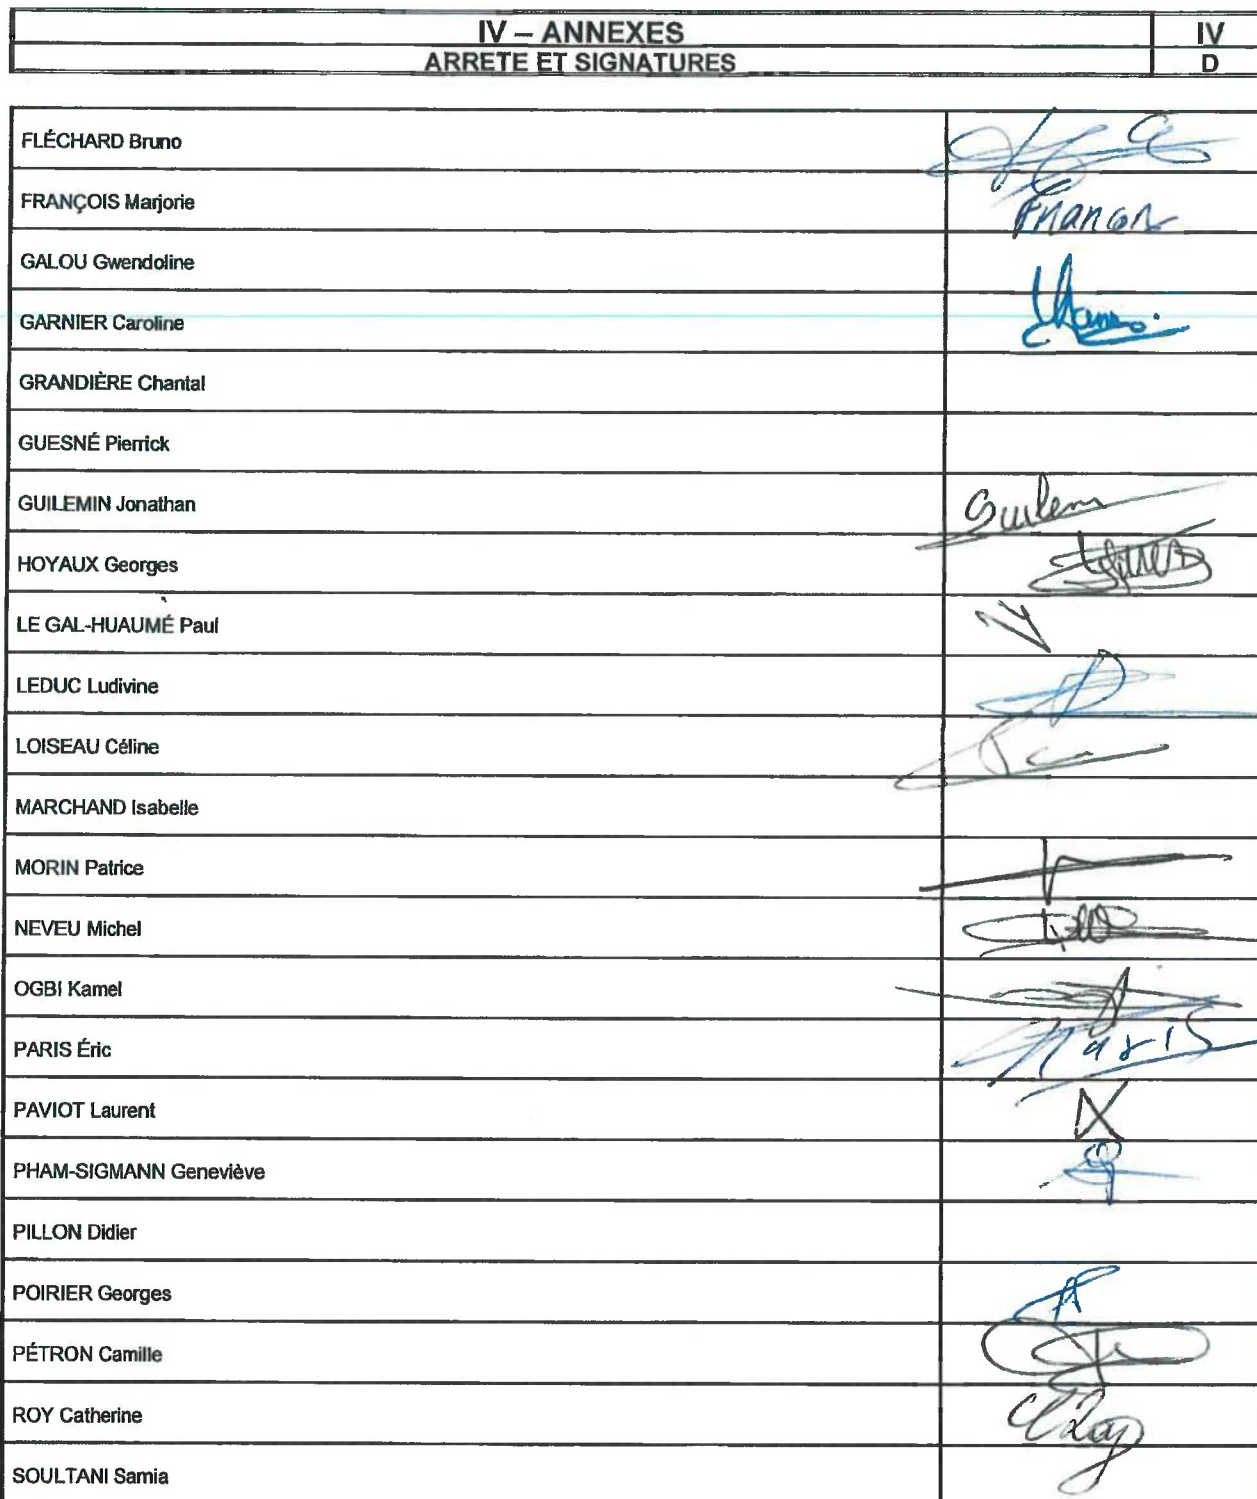 IV – ANNEXES
IV
ARRETE ET SIGNATURES
D
FLÉCHARD Bruno
FRANÇOIS Marjorie
GALOU Gwendoline
GARNIER Caroline
GRANDIÈRE Chantal
GUESNÉ Pierrick
GUILEMIN Jonathan
HOYAUX Georges
LE GAL-HUAUMÉ Paul
LEDUC Ludivine
LOISEAU Céline
MARCHAND Isabelle
MORIN Patrice
NEVEU Michel
OGBI Kamel
PARIS Éric
Paris
PAVIOT Laurent
PHAM-SIGMANN Geneviève
PILLON Didier
POIRIER Georges
PÉTRON Camille
ROY Catherine
SOULTANI Samia